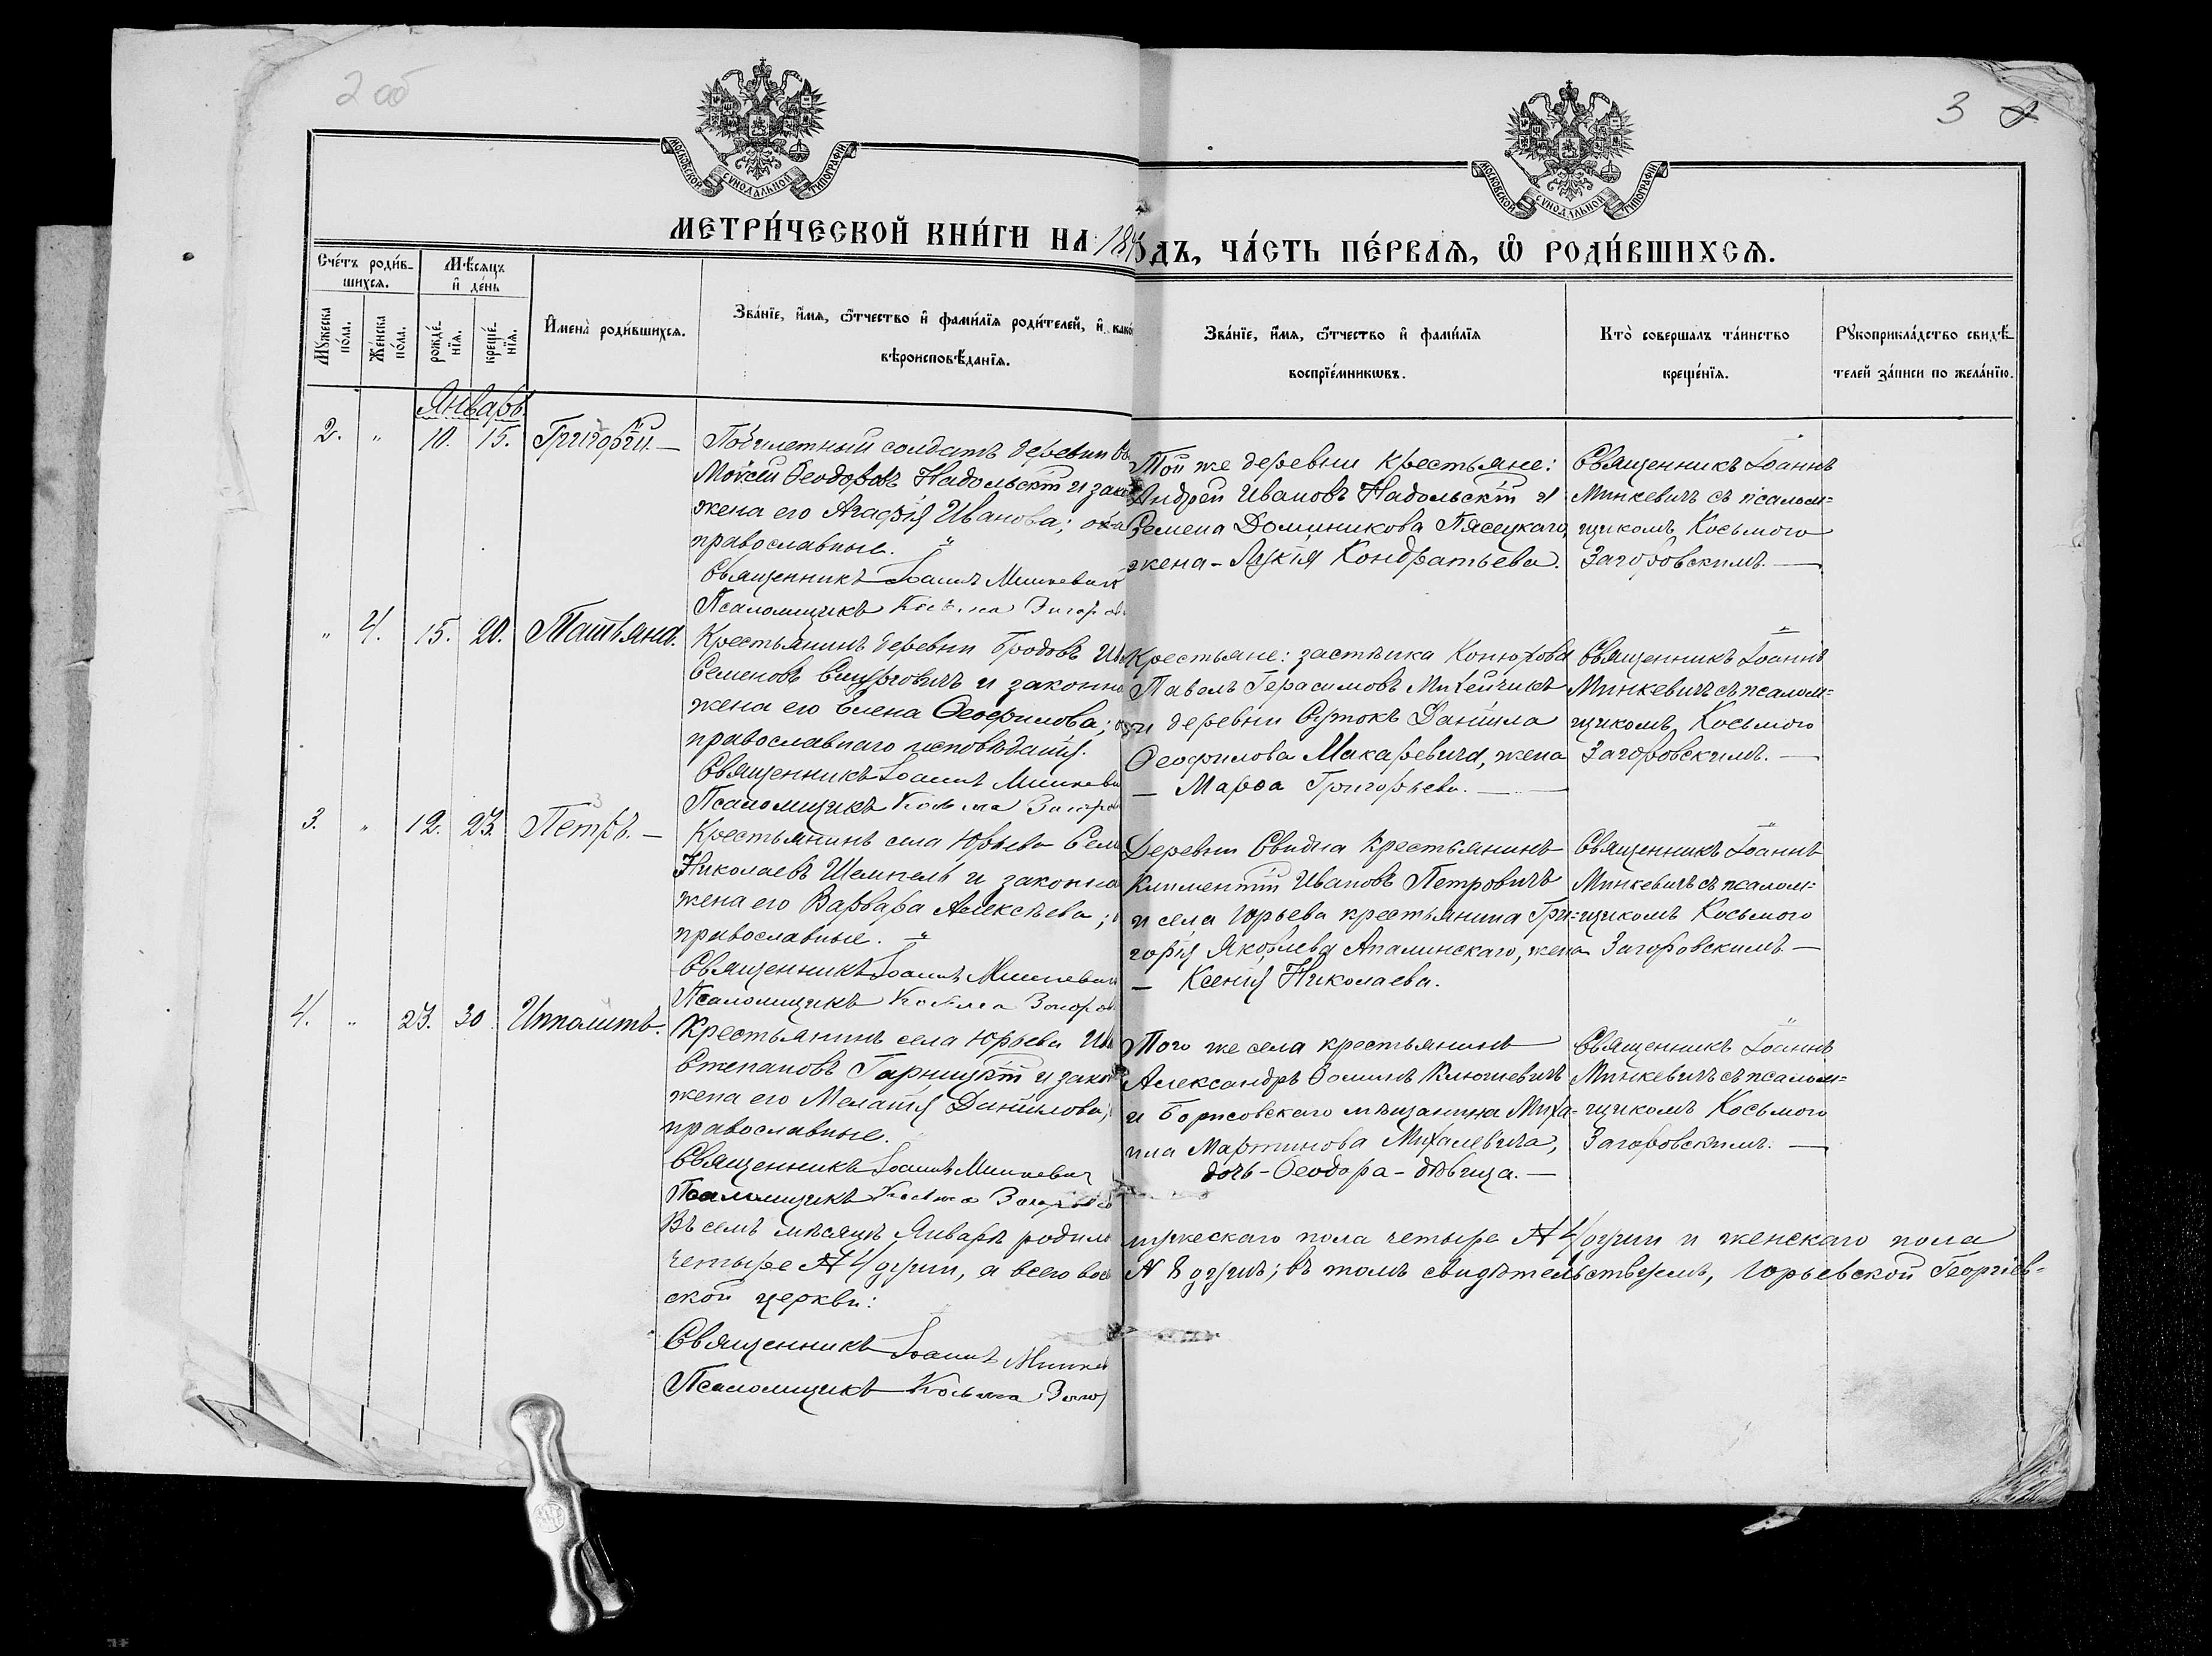 2 об
3
МОСКОВСКОЙ СѴНОДАЛЬНОЙ ТИПОГРАФІИ
МОСКОВСКОЙ СѴНОДАЛЬНОЙ ТИПОГРАФІИ
МЕТРИ́ЧЕСКОЙ КНИ́ГИ НА 187
ДЪ, ЧА́СТЬ ПЕ́РВАЯ, Ѡ РОДИ́ВШИХСЯ.
Сче́тъ роди́в-
шихся.
Мѣ́сяцъ
и҆ де́нь
Мꙋ́жеска по́ла.
Же́нска по́ла.
рожде́-
нїя.
креще́-
нїя.
И҆мена̀ роди́вшихся.
Зва́нїе, и҆́мя, ѻ҆́тчество и҆ фами́лїя роди́телей, и҆ како
вѣроисповѣ́данїя.
Зва́нїе, и҆́мя, ѻ҆́тчество и҆ фами́лїя
воспрїе́мникѡвъ.
Кто̀ соверша́лъ та́инство
креще́нїя.
Рꙋкоприкла́дство свидѣ́-
телей за́писи по жела́нїю.
Январь.
2. " 10. 15. Григорій. —
солдатъ деревни
Моѵсей Ѳеодоровъ Надольскій и зако
жена его Агафія Иванова; оба
православные. "
Священникъ Іоаннъ Минкевич
Псаломщикъ Косьма Загоров
Той же деревни крестьяне:
Андрей Ивановъ Надольскій и
Семена Доминикова Пясецкаго,
жена - Лукія Кондратьева.
Священникъ Іоаннъ
Минкевичъ съ псалом=
щикомъ Косьмою
Загоровскимъ. —
" 4. 15. 20. Татьяна.
Крестьянинъ деревни Бродовъ Ив
Семеновъ и законна
жена его Елена Ѳеофилова;
православнаго исповѣданія.
Священникъ Іоаннъ Минкеви
Псаломщикъ Косьма Загоров
Крестьяне: застѣнка Конюхова
Павелъ Герасимовъ Михейчикъ
и деревни Сутокъ Даніила
Ѳеофилова Макаревича, жена
— Марѳа Григорьева. —
Священникъ Іоаннъ
Минкевичъ съ псалом=
щикомъ Косьмою
Загоровскимъ. —
3. " 12. 23. Петръ. —
Крестьянинъ села Юрьева Семе
Николаевъ Шемпель и законна
жена его Варвара Алексѣева;
православные. "
Священникъ Іоаннъ Минкевич
Псаломщикъ Косьма Загоров
Деревни Свидна крестьянинъ
Климентій Ивановъ Петровичъ
и села Юрьева крестьянина Гри=
горія Яковлева Апалинскаго, жена
— Ксенія Николаева.
Священникъ Іоаннъ
Минкевичъ съ псалом=
щикомъ Косьмою
Загоровскимъ —
4. " 23. 30 Ипполитъ.
Крестьянинъ села Юрьева Ив
Степановъ Гарницкій и закон
жена его Меланія Даніилова;
православные.
Священникъ Іоаннъ Минкевич
Псаломщикъ Косьма Загоров
Того же села крестьянинъ
Александръ Ѳоминъ Клюшевичъ
и Борисовскаго мѣщанина Миха=
ила Мартинова Михалевича,
дочь - Ѳеодора - дѣвица. —
Священникъ Іоаннъ
Минкевичъ съ псалом=
щикомъ Косьмою
Загоровскимъ. —
Въ семъ мѣсяцѣ Январѣ родило мужескаго пола четыре № 4 души и женскаго пола
четыре № 4 души, а всего вос № 8 душъ; въ томъ свидѣтельствуемъ, Юрьевской Георгіев=
ской церкви:
Священникъ Іоаннъ Минкев
Псаломщикъ Косьма Загор